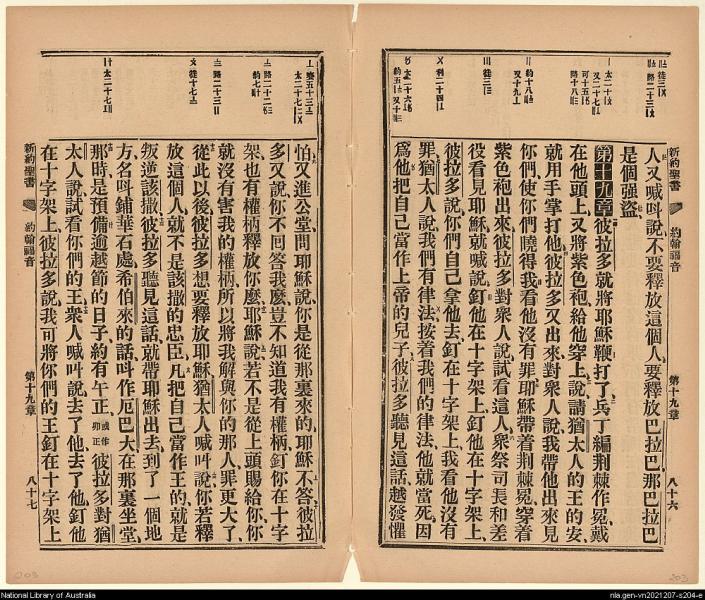 人又喊叫說、不要釋放這個人、要釋放巴拉巴、那巴拉巴
是個强盜、
第十九章 彼拉多就將耶穌鞭打了、兵丁編荆棘作冕、戴
在他頭上、又將紫色袍給他穿上、說請猶太人的王的安、
就用手掌打他、彼拉多又出來對衆人說、我帶他出來見
你們、使你們曉得我看他沒有罪、耶穌帶着荆棘冕、穿着
紫色袍出來、彼拉多對衆人說、試看這人、衆祭司長和差
役看見耶穌、就喊說、釘他在十字架上、釘他在十字架上、
彼拉多說、你們自己拿他去、釘在十字架上、我看他沒有
罪、猶太人說、我們有律法、按着我們的律法、他就當死、因
爲他把自己當作上帝的兒子、彼拉多聽見這話、越發懼
新約聖書 約翰福音 第十九章 八十六
怕、又進公堂問耶穌說、你是從那裏來的、耶穌不答、彼拉
多又說、你不回答我麽、豈不知道我有權柄釘你在十字
架、也有權柄釋放你麽、耶穌說、若不是從上頭賜給你、你
就沒有害我的權柄、所以將我解與你的那人、罪更大了、
從此以後、彼拉多想要釋放耶穌、猶太人喊叫說、你若釋
放這個人、就不是該撒的忠臣、凡把自己當作王的、就是
叛逆該撒、彼拉多聽見這話、就帶耶穌出去、到了一個地
方、名叫鋪華石處、希伯來的話叫作厄巴大、在那裏坐堂、
那時是預備逾越節的日子、約有午正、或作卯正 彼拉多對猶
太人說、試看你們的王、衆人喊叫說、去了他、去了他、釘他
在十字架上、彼拉多說、我可將你們的王釘在十字架上
新約聖書 約翰福音 第十九章 八十七
National Library of Australia
nla.gen-vn2021207-s204-e